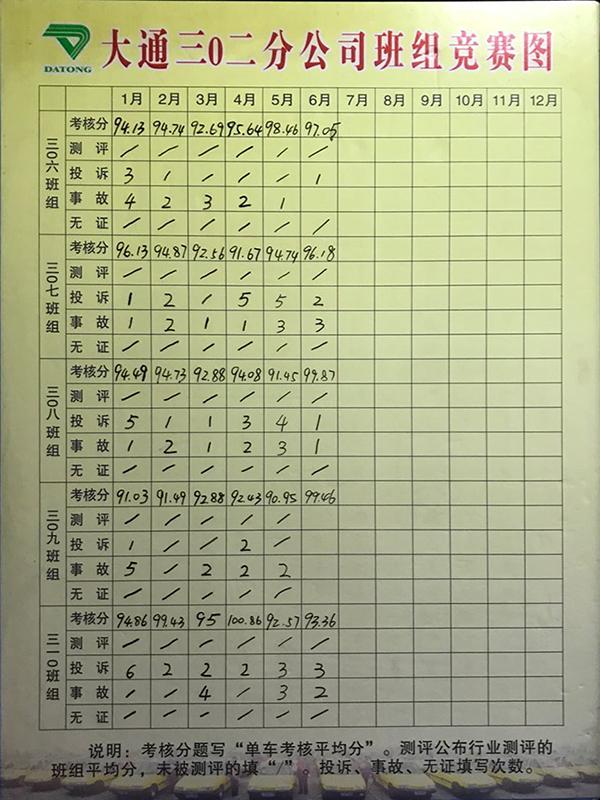 DATONG
大通三0二分公司班组竞赛图
1月 2月 3月 4月 5月 6月 7月 8月 9月 10月 11月 12月
三0六班组
考核分 94.13 94.74 92.69 95.64 98.46 97.05
测评 / / / / / /
投诉 3 1 / / / 1
事故 4 2 3 2 1
无证 / / / / / /
三0七班组
考核分 96.13 94.87 92.56 91.67 94.74 96.18
测评 / / / / / /
投诉 1 2 / 5 5 2
事故 1 2 1 1 3 3
无证 / / / / / /
三0八班组
考核分 94.49 94.73 92.88 94.08 91.45 99.87
测评 / / / / / /
投诉 5 1 1 3 4 1
事故 1 2 1 2 3 1
无证 / / / / / /
三0九班组
考核分 91.03 91.49 92.88 92.43 90.95 99.46
测评 / / / / /
投诉 1 / / 2 /
事故 5 / 2 2 2
无证 / / / / /
三一0班组
考核分 94.86 99.43 95 100.86 92.57 93.36
测评 / / / / / /
投诉 6 2 2 2 3 3
事故 / / 4 / 3 2
无证 / / / / / /
说明：考核分题写“单车考核平均分”。测评公布行业测评的
班组平均分，未被测评的填“/”。投诉、事故、无证填写次数。